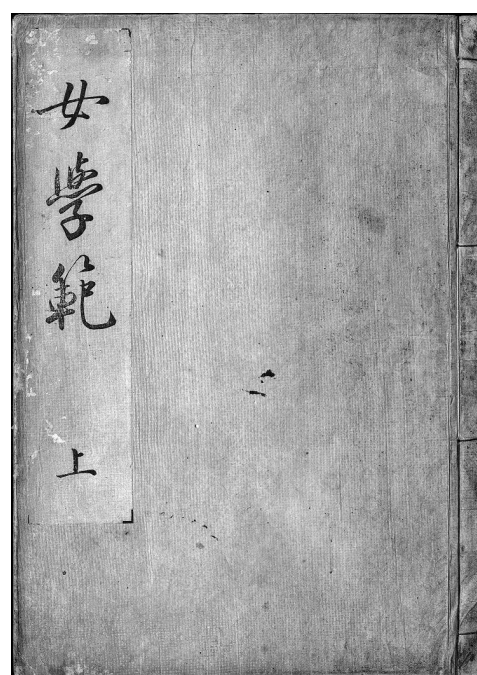 女學範 上